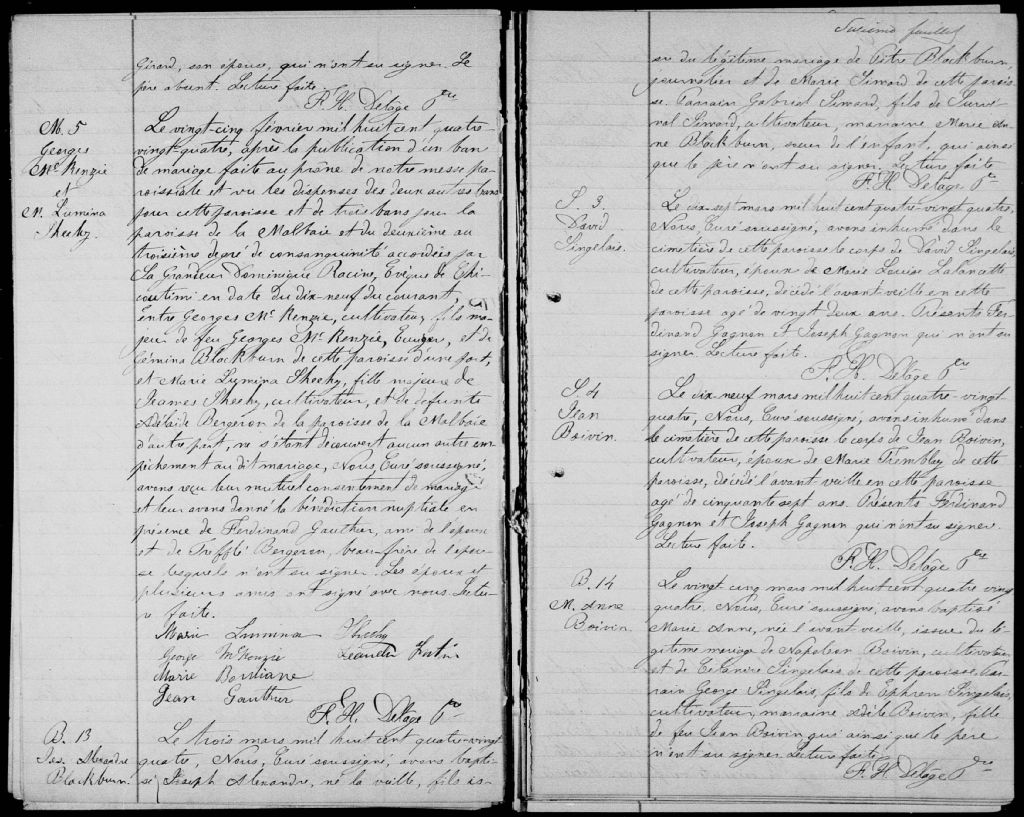 Girard, son épouse, qui n'ont su signer. Le
père absent. Lecture faite.
F. H. Delâge Ptre
M. 5
Georges
McKenzie
et
M. Lumina
Sheehy.
Le vingt-cinq février mil huit cent quatre-
vingt-quatre, après la publication d'un ban
de mariage faite au prône de notre messe pa-
roissiale et vu les dispenses des deux autres bans
pour cette paroisse et de trois bans pour la
paroisse de la Malbaie et du deuxième au
troisième degré de consanguinité accordées par
Sa Grandeur Dominique Racine, Evêque de Chi-
coutimi en date du dix-neuf du courant,
entre Georges McKenzie, cultivateur, fils ma-
jeur de feu Georges McKenzie, et de
Blackburn de cette paroisse d'une part,
et Marie Lumina Sheehy, fille majeure de
James Sheehy, cultivateur, et de defunte
Adélaide Bergeron de la paroisse de la Malbaie
d'autre part, ne s'étant découvert aucun autre em-
pêchement au dit mariage, Nous, Curé soussigné,
avons reçu leur mutuel consentement de mariage
et leur avons donné la bénédiction nuptiale en
présence de Ferdinand Gauthier, ami de l'époux
et de Trefflé Bergeron, beau-frère de l'épou-
se lesquels n'ont su signer. Les époux et
plusieurs amis ont signé avec nous. Lectu-
re faite.
Marie Lumina Sheehy
George McKenzie
Marie Bouliane
Jean Gauthier
F. H. Delâge Ptre
B. 13
Jos. Alexandre
Blackburn.
Le trois mars mil huit cent quatre-vingt
quatre, Nous, Curé soussigné, avons bapti-
sé Joseph Alexandre, né la veille, fils is-
feuillet
su du légitime mariage de Pitre Blackburn,
journalier et de Marie Simard de cette parois-
se. Parrain Gabriel Simard, fils de
Simard, cultivateur, marraine, Marie An-
ne Blackburn, sœur de l'enfant, qui ainsi
que le père n'ont su signer. Lecture faite
F. H. Delâge Ptre
S. 3.
David
Singelais.
Le dix-sept mars mil huit cent quatre-vingt quatre,
Nous, Curé soussigné, avons inhumé dans le
cimetière de cette paroisse le corps de David Singelais,
cultivateur, époux de Marie Louise
de cette paroisse, décédé l'avant veille en cette
paroisse agé de vingt deux ans. Présents Fer-
dinand Gagnon et Joseph Gagnon qui n'ont su
signer. Lecture faite.
F. H. Delâge Ptre
S. 4
Jean
Boivin.
Le dix-neuf mars mil huit cent quatre-vingt-
quatre, Nous, Curé soussigné, avons inhumé dans
le cimetière de cette paroisse le corps de Jean Boivin,
cultivateur, époux de Marie Tremblay de cette
paroisse, décédé l'avant veille en cette paroisse
agé de cinquante sept ans. Présents Ferdinand
Gagnon et Joseph Gagnon qui n'ont su signer.
Lecture faite.
F. H. Delâge Ptre
B. 14
M. Anne
Boivin.
Le vingt cinq mars mil huit cent quatre vingt
quatre. Nous, Curé soussigné, avons baptisé
Marie Anne, née l'avant veille, issue du lé-
gitime mariage de Napoléon Boivin, cultivateur
et de Singelais, de cette paroisse. Par-
rain George Singelais, fils de Ephrem Singelais,
cultivateur, marraine Adèle Boivin, fille
de feu Jean Boivin qui ainsi que le père
n'ont su signer. Lecture faite.
F. H. Delâge Ptre